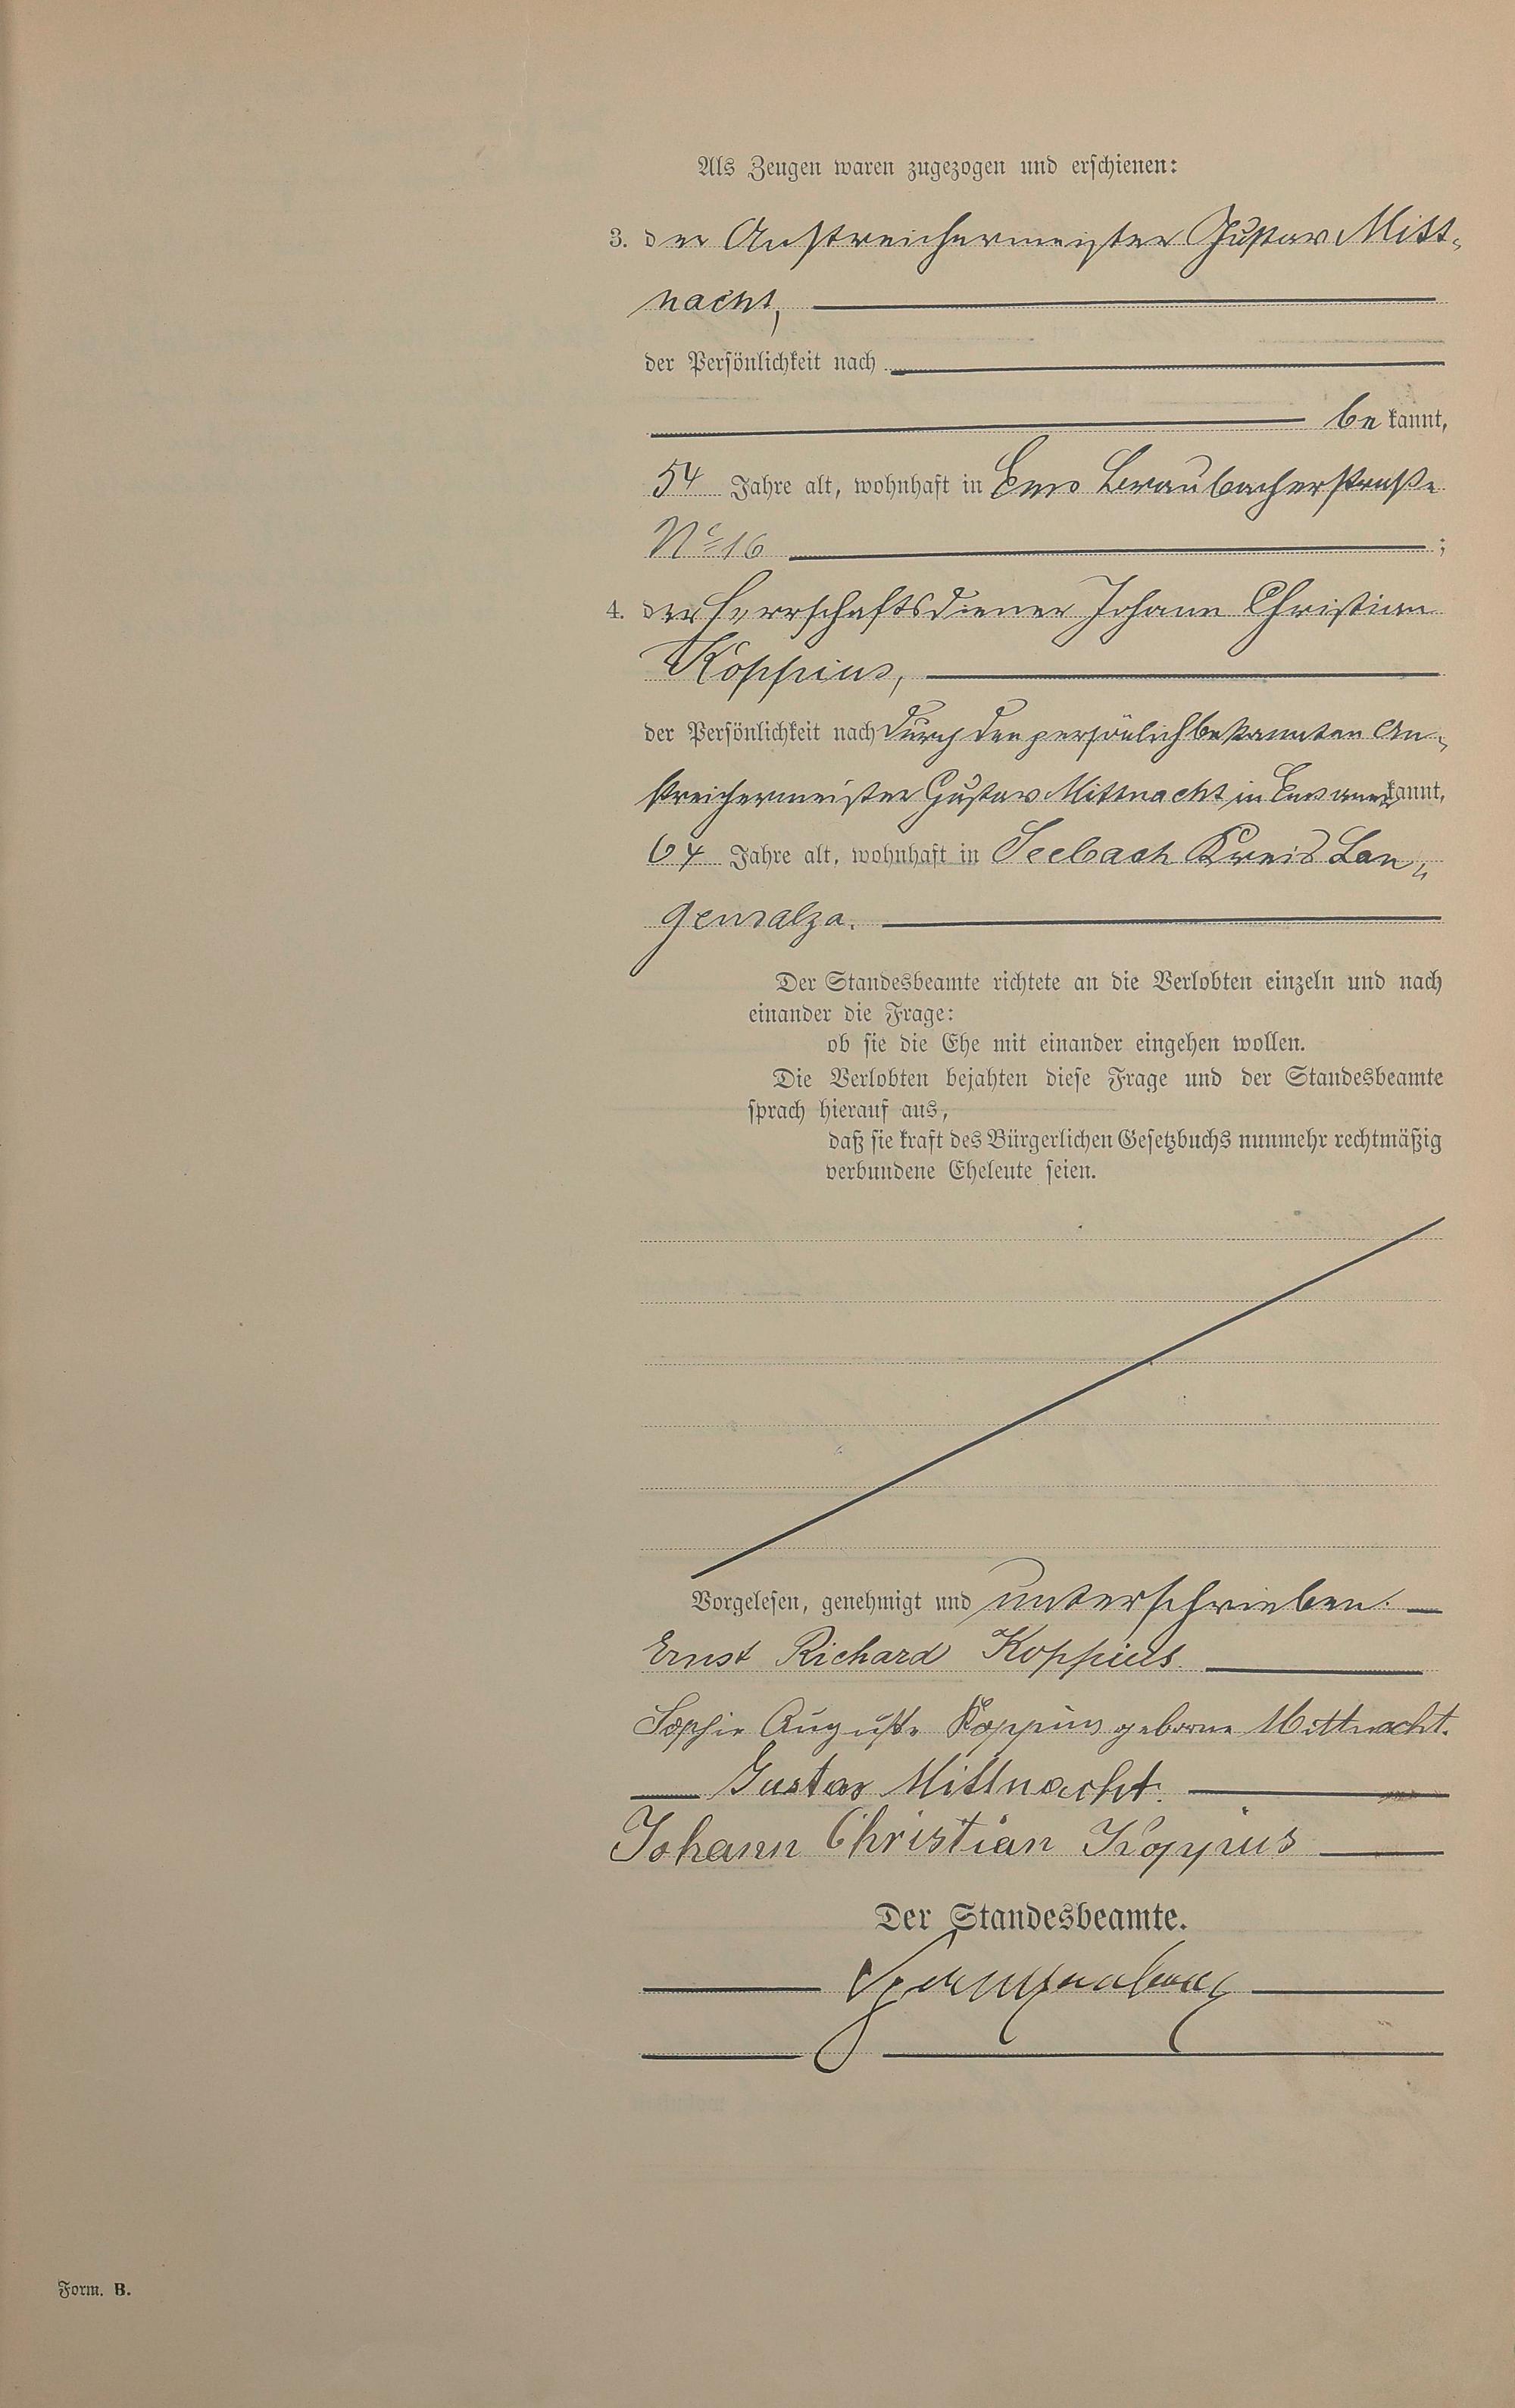 Als Zeugen waren zugezogen und erschienen:
3. der Anstreichermeister Gustav Mitt-
nacht,
der Persönlichkeit nach
be kannt,
54 Jahre alt, wohnhaft in Ems Braubacherstraße
No 16 ;
4. der Herrschaftsdiener Johann Christian
Koppius,
der Persönlichkeit nach durch den persönlich bekannten An-
streichermeister Gustav Mittnacht in Ems anerkannt,
64 Jahre alt, wohnhaft in Seebach Kreis Lan-
gensalza.
Der Standesbeamte richtete an die Verlobten einzeln und nach
einander die Frage:
ob sie die Ehe mit einander eingehen wollen.
Die Verlobten bejahten diese Frage und der Standesbeamte
sprach hierauf aus,
daß sie kraft des Bürgerlichen Gesetzbuchs nunmehr rechtmäßig
verbundene Eheleute seien.
Vorgelesen, genehmigt und unterschrieben.
Ernst Richard Koppius.
Sophie Auguste Koppius geborne Mittnacht.
Gustav Mittnacht.
Johann Christian Koppius
Der Standesbeamte.
Form. B.